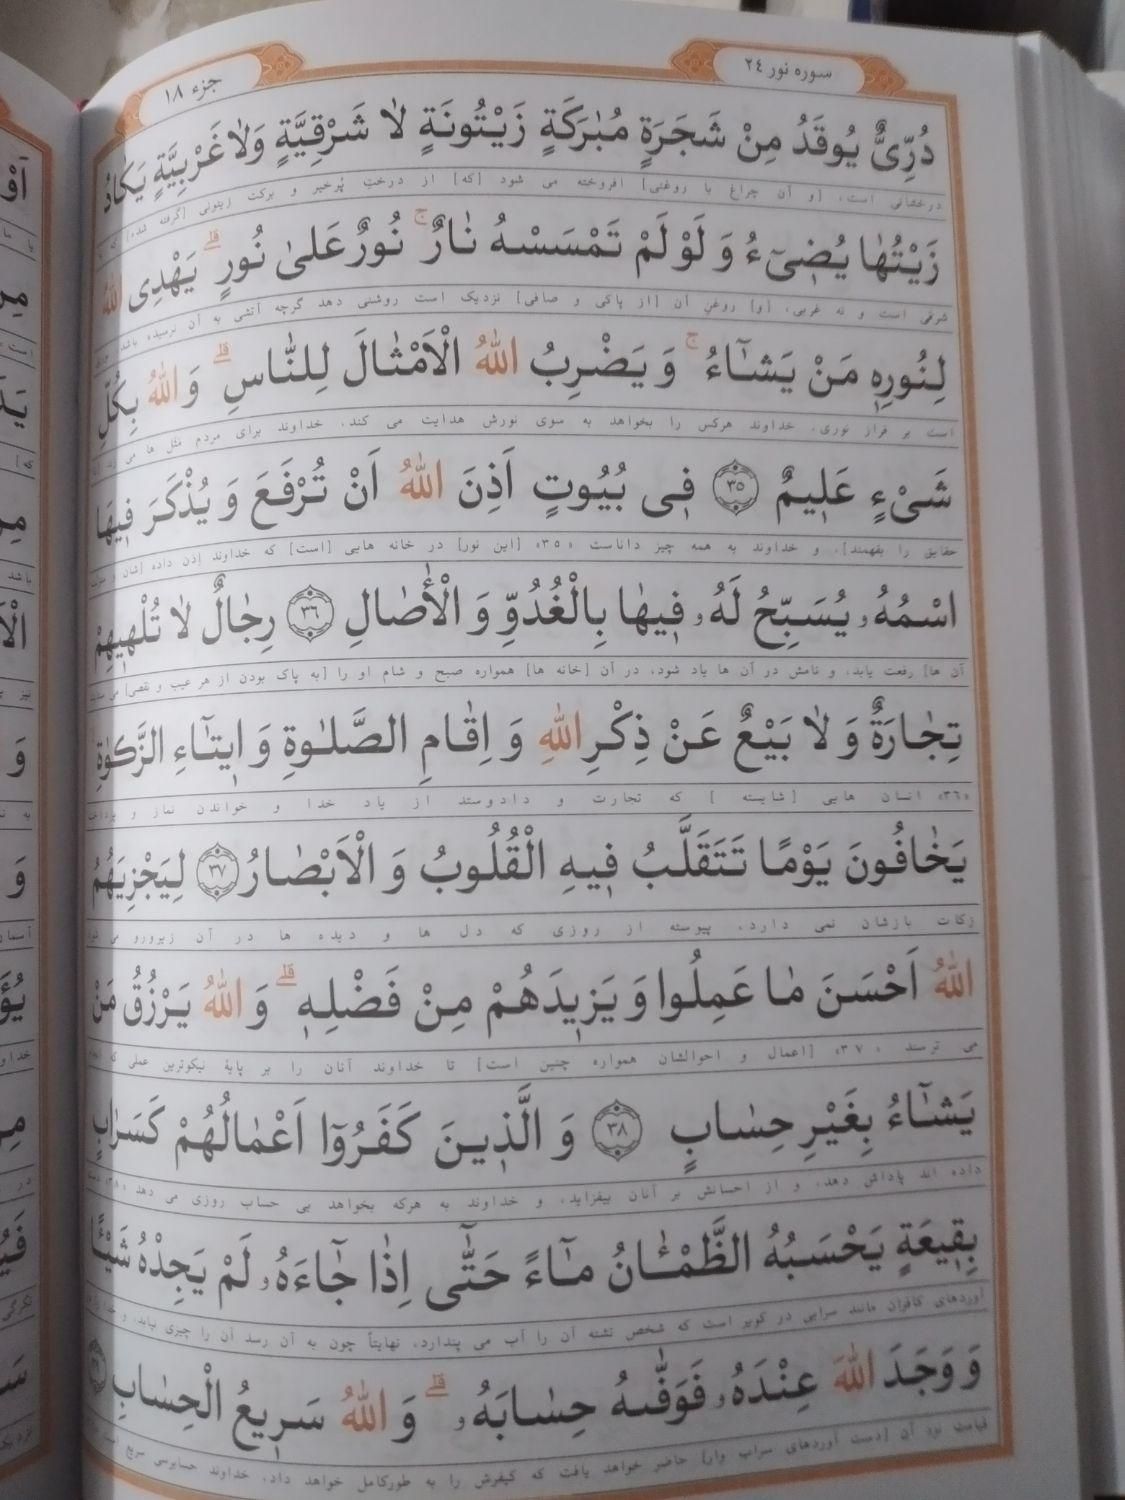 سوره نور ٢٤
جزء ١٨
دُرِّىٌّ يُوقَدُ مِنْ شَجَرَةٍ مُبٰرَكَةٍ زَيْتُونَةٍ لٰا شَرْقِيَّةٍ وَلٰاغَرْبِيَّةٍ يَكٰادُ
درخشانی است، [و آن چراغ با روغنی] افروخته می شود [که] از درختِ پُرخیر و برکت زیتونی [گرفته شده] که
زَيْتُهٰا يُضٖىٓءُ وَ لَوْ لَمْ تَمْسَسْهُ نٰارٌ ج نُورٌ عَلىٰ نُورٍ قلے يَهْدِى اللّٰهُ
شرقی است و نه غربی، [و] روغنِ آن [از پاکی و صافی] نزدیک است روشنی دهد گرچه آتشی به آن نرسیده باشد،
لِنُورِهٖ مَنْ يَشٰٓاءُ ج وَ يَضْرِبُ اللّٰهُ الْاَمْثٰالَ لِلنّٰاسِ قلے وَ اللّٰهُ بِكُلِّ
است بر فراز نوری، خداوند هرکس را بخواهد به سوی نورش هدایت می کند، خداوند برای مردم مثل ها می زند
شَىْءٍ عَلٖيمٌ ٣٥ فٖى بُيُوتٍ اَذِنَ اللّٰهُ اَنْ تُرْفَعَ وَ يُذْكَرَ فٖيهَا
حقایق را بفهمند]، و خداوند به همه چیز داناست «٣٥» [این نور] در خانه هایی [است] که خداوند اِذن داده [شان و منزلت
اسْمُهُۥ يُسَبِّحُ لَهُۥ فٖيهٰا بِالْغُدُوِّ وَ الْاٰصٰالِ ٣٦ رِجٰالٌ لٰا تُلْهٖيهِمْ
آن ها] رفعت یابد، و نامش در آن ها یاد شود، در آن [خانه ها] همواره صبح و شام او را [به پاک بودن از هر عیب و نقصی] می ستایند
تِجٰارَةٌ وَ لٰا بَيْعٌ عَنْ ذِكْرِ اللّٰهِ وَ اِقٰامِ الصَّلٰوةِ وَ اٖيتٰٓاءِ الزَّكٰوةِ
«٣٦» انسان هایی [شایسته] که تجارت و دادوستد از یاد خدا و خواندن نماز و پرداخت
يَخٰافُونَ يَوْمًا تَتَقَلَّبُ فٖيهِ الْقُلُوبُ وَ الْاَبْصٰارُ ٣٧ لِيَجْزِيَهُمُ
زکات بازشان نمی دارد، پیوسته از روزی که دل ها و دیده ها در آن زیرورو می شود
اللّٰهُ اَحْسَنَ مٰا عَمِلُوا وَ يَزٖيدَهُمْ مِنْ فَضْلِهٖ قلے وَ اللّٰهُ يَرْزُقُ مَنْ
می ترسند «٣٧» [اعمال و احوالشان همواره چنین است] تا خداوند آنان را بر پایهٔ نیکوترین عملی که انجام
يَشٰٓاءُ بِغَيْرِ حِسٰابٍ ٣٨ وَ الَّذٖينَ كَفَرُوٓا اَعْمٰالُهُمْ كَسَرٰابٍ
داده اند پاداش دهد، و از احسانش بر آنان بیفزاید، و خداوند به هرکه بخواهد بی حساب روزی می دهد «٣٨» دست
بِقٖيعَةٍ يَحْسَبُهُ الظَّمْـٰٔانُ مٰٓاءً حَتّٰٓى اِذٰا جٰٓاءَهُۥ لَمْ يَجِدْهُ شَيْـًٔا
آوردهای کافران مانند سرابی در کویر است که شخص تشنه آن را آب می پندارد، نهایتاً چون به آن رسد آن را چیزی نیابد، و خدا را در
وَ وَجَدَ اللّٰهَ عِنْدَهُۥ فَوَفّٰىهُ حِسٰابَهُۥ قلے وَ اللّٰهُ سَرٖيعُ الْحِسٰابِ ٣٩
قیامت نزد آن [دست آوردهای سراب وار] حاضر خواهد یافت که کیفرش را به طورکامل خواهد داد، خداوند حسابرسی سریع است